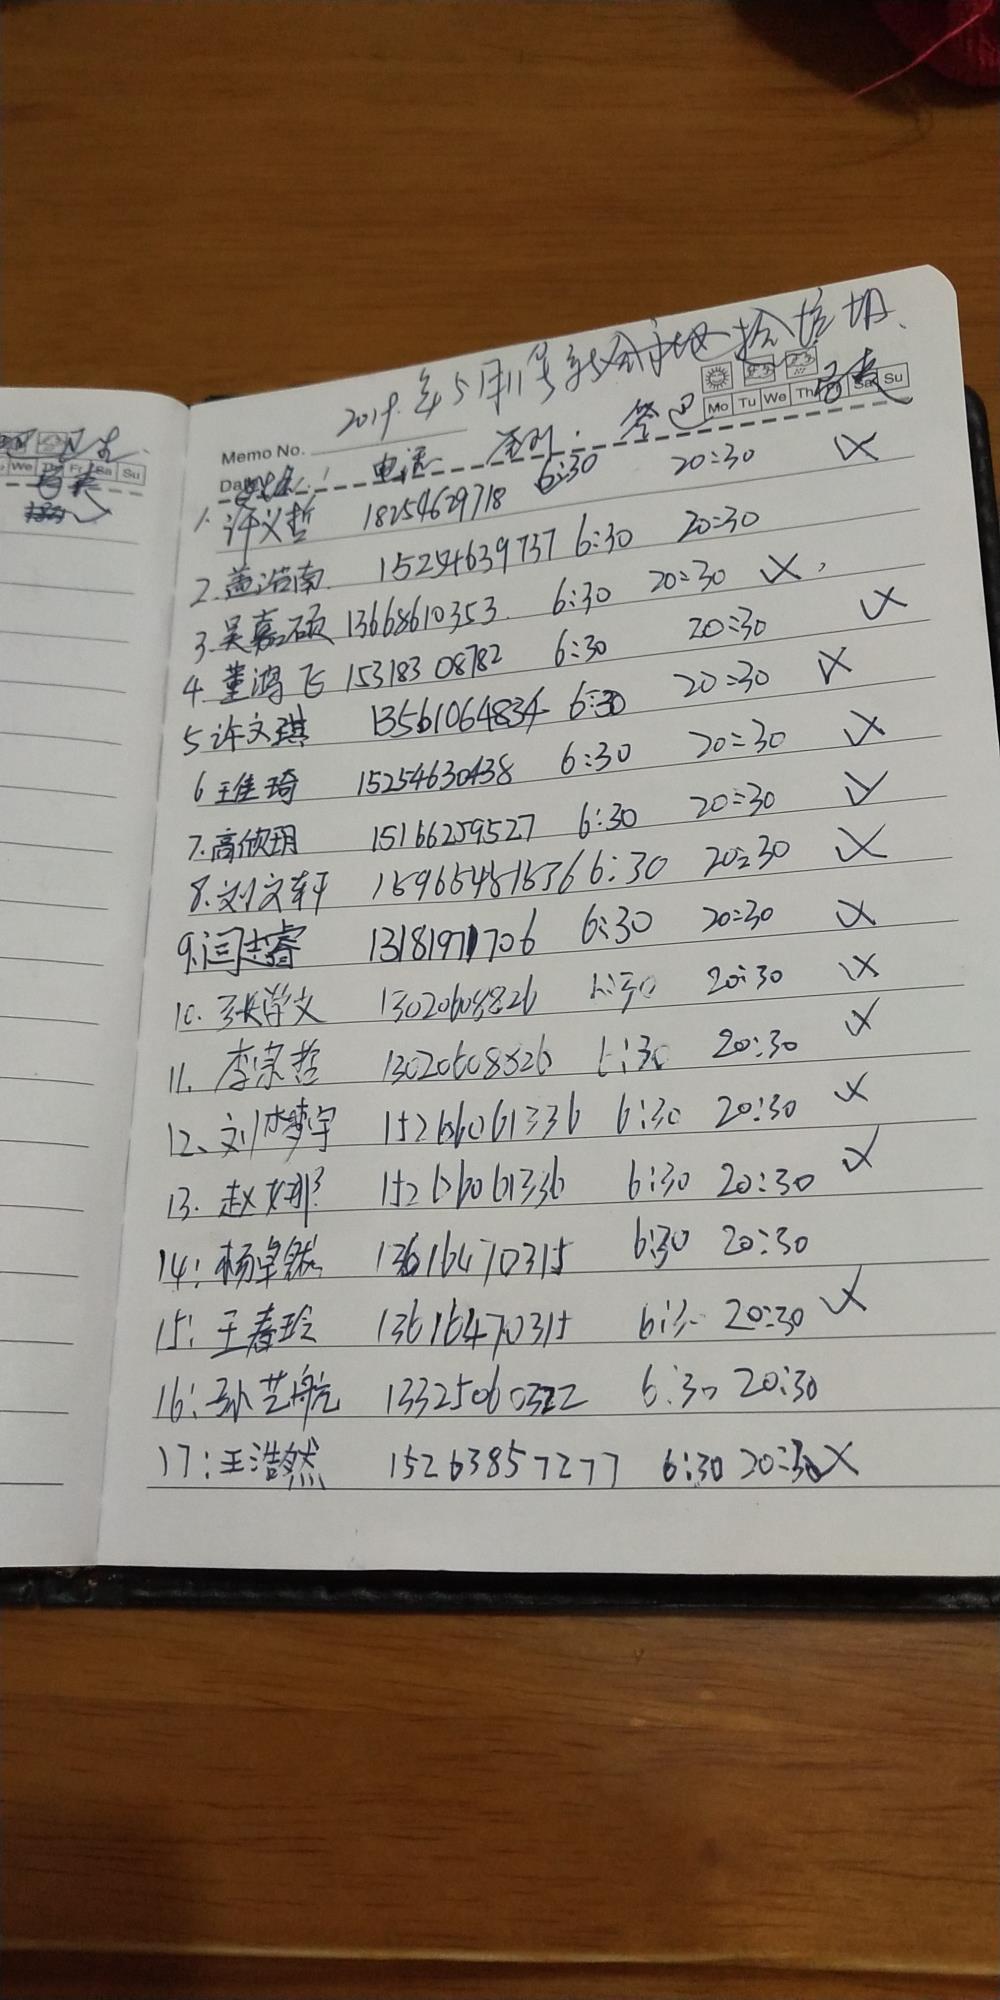 We Th Fr Sa Su
2019.年5月11号
Memo No.
Mo Tu We Th Sa Su
Date 姓名: 电话
1. 许义哲 18254629718 6:30 20:30
2. 黄浩南 15254639737 6:30 20:30
3. 吴嘉硕 13668610353. 6:30 20:30
4. 董鸿飞 15318308782 6:30 20:30
5 许文琪 13561064834 6:30 20:30
6 王佳琦 15254630438 6:30 20:30
7. 高欣玥 15166259527 6:30 20:30
8. 刘文轩 15965451536 6:30 20:30
9. 闫志睿 13181971706 6:30 20:30
10. 张学文 13020608826 6:30 20:30
11. 李宗哲 13020608826 6:30 20:30
12、刘梦宇 15266061336 6:30 20:30
13. 赵娜 15266061336 6:30 20:30
14: 杨卓然 13616470315 6:30 20:30
15: 王春玲 13616470315 6:30 20:30
16: 孙艺航 13325060322 6:30 20:30
17: 王浩然 15263857277 6:30 20:30